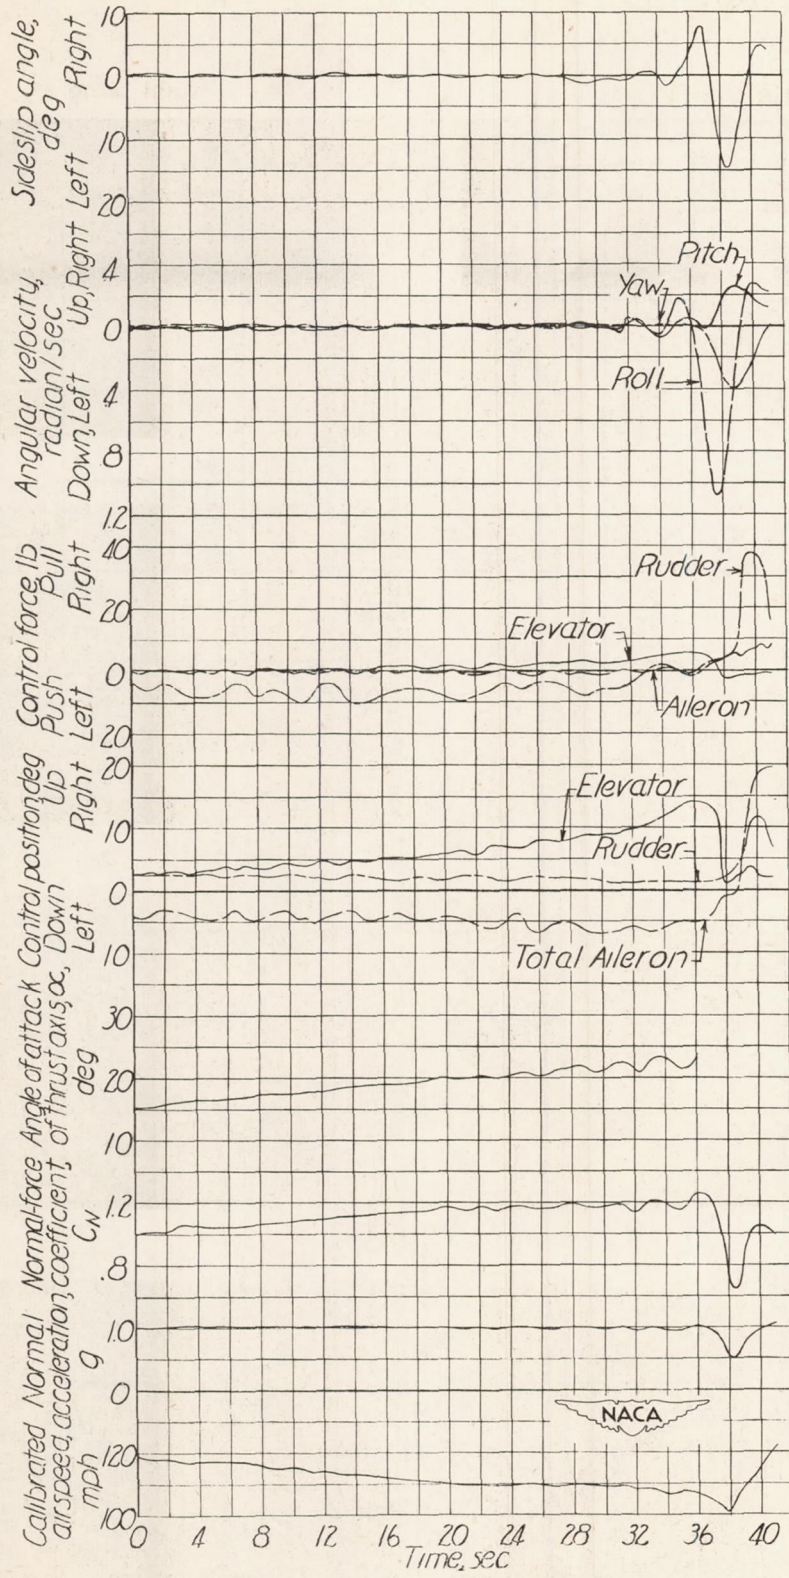 Sideslip angle,
deg
Left Right
10
0
10
20
Angular velocity,
radian/sec
Down,Left Up,Right
4
0
4
.8
1.2
Pitch
Yaw
Roll
Control force, lb
Push Pull
Left Right
40
20
0
20
Rudder
Elevator
Aileron
Control position,deg
Down Up
Left Right
20
10
0
10
Elevator
Rudder
Total Aileron
Angle of attack
of thrust axis,α,
deg
30
20
10
Normal-force
coefficient,
CN
1.2
.8
Normal
acceleration,
g
1.0
0
NACA
Calibrated
airspeed,
mph
120
100
0 4 8 12 16 20 24 28 32 36 40
Time, sec